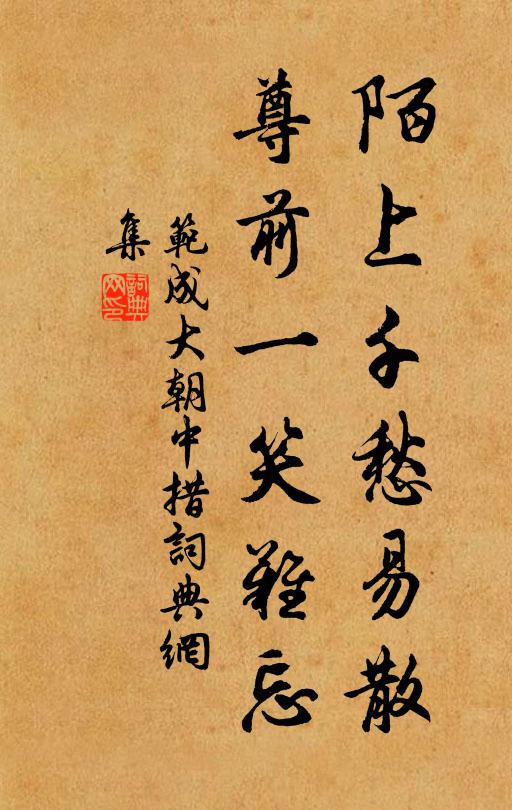 陌上千愁易散
尊前一笑難忘
範成大朝中措詞典網
集
詞典
网印